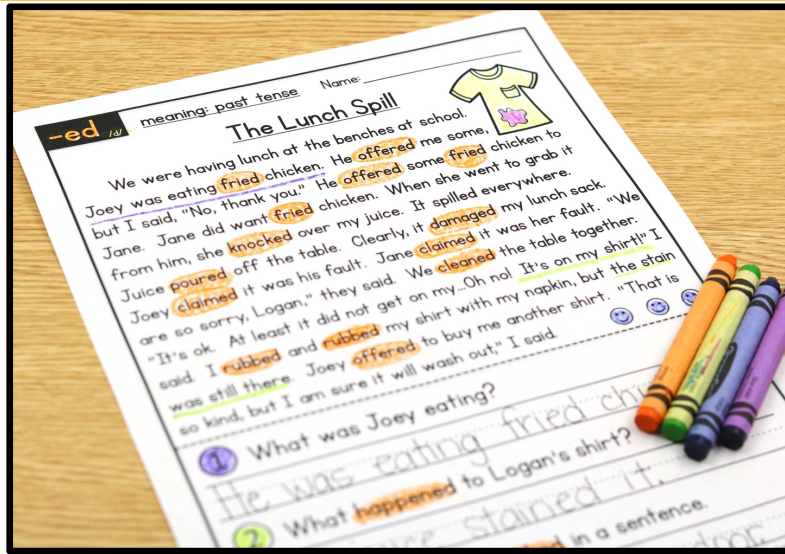 -ed /d/ meaning: past tense Name:
The Lunch Spill
We were having lunch at the benches at school.
Joey was eating fried chicken. He offered me some,
but I said, "No, thank you." He offered some fried chicken to
Jane. Jane did want fried chicken. When she went to grab it
from him, she knocked over my juice. It spilled everywhere.
Juice poured off the table. Clearly, it damaged my lunch sack.
Joey claimed it was his fault. Jane claimed it was her fault. "We
are so sorry, Logan," they said. We cleaned the table together.
"It's ok. At least it did not get on my...Oh no! It's on my shirt!" I
said. I rubbed and rubbed my shirt with my napkin, but the stain
was still there. Joey offered to buy me another shirt. "That is
so kind, but I am sure it will wash out," I said.
1 What was Joey eating?
He was eating fried
2 What happened to Logan's shirt?
stained it.
in a sentence.